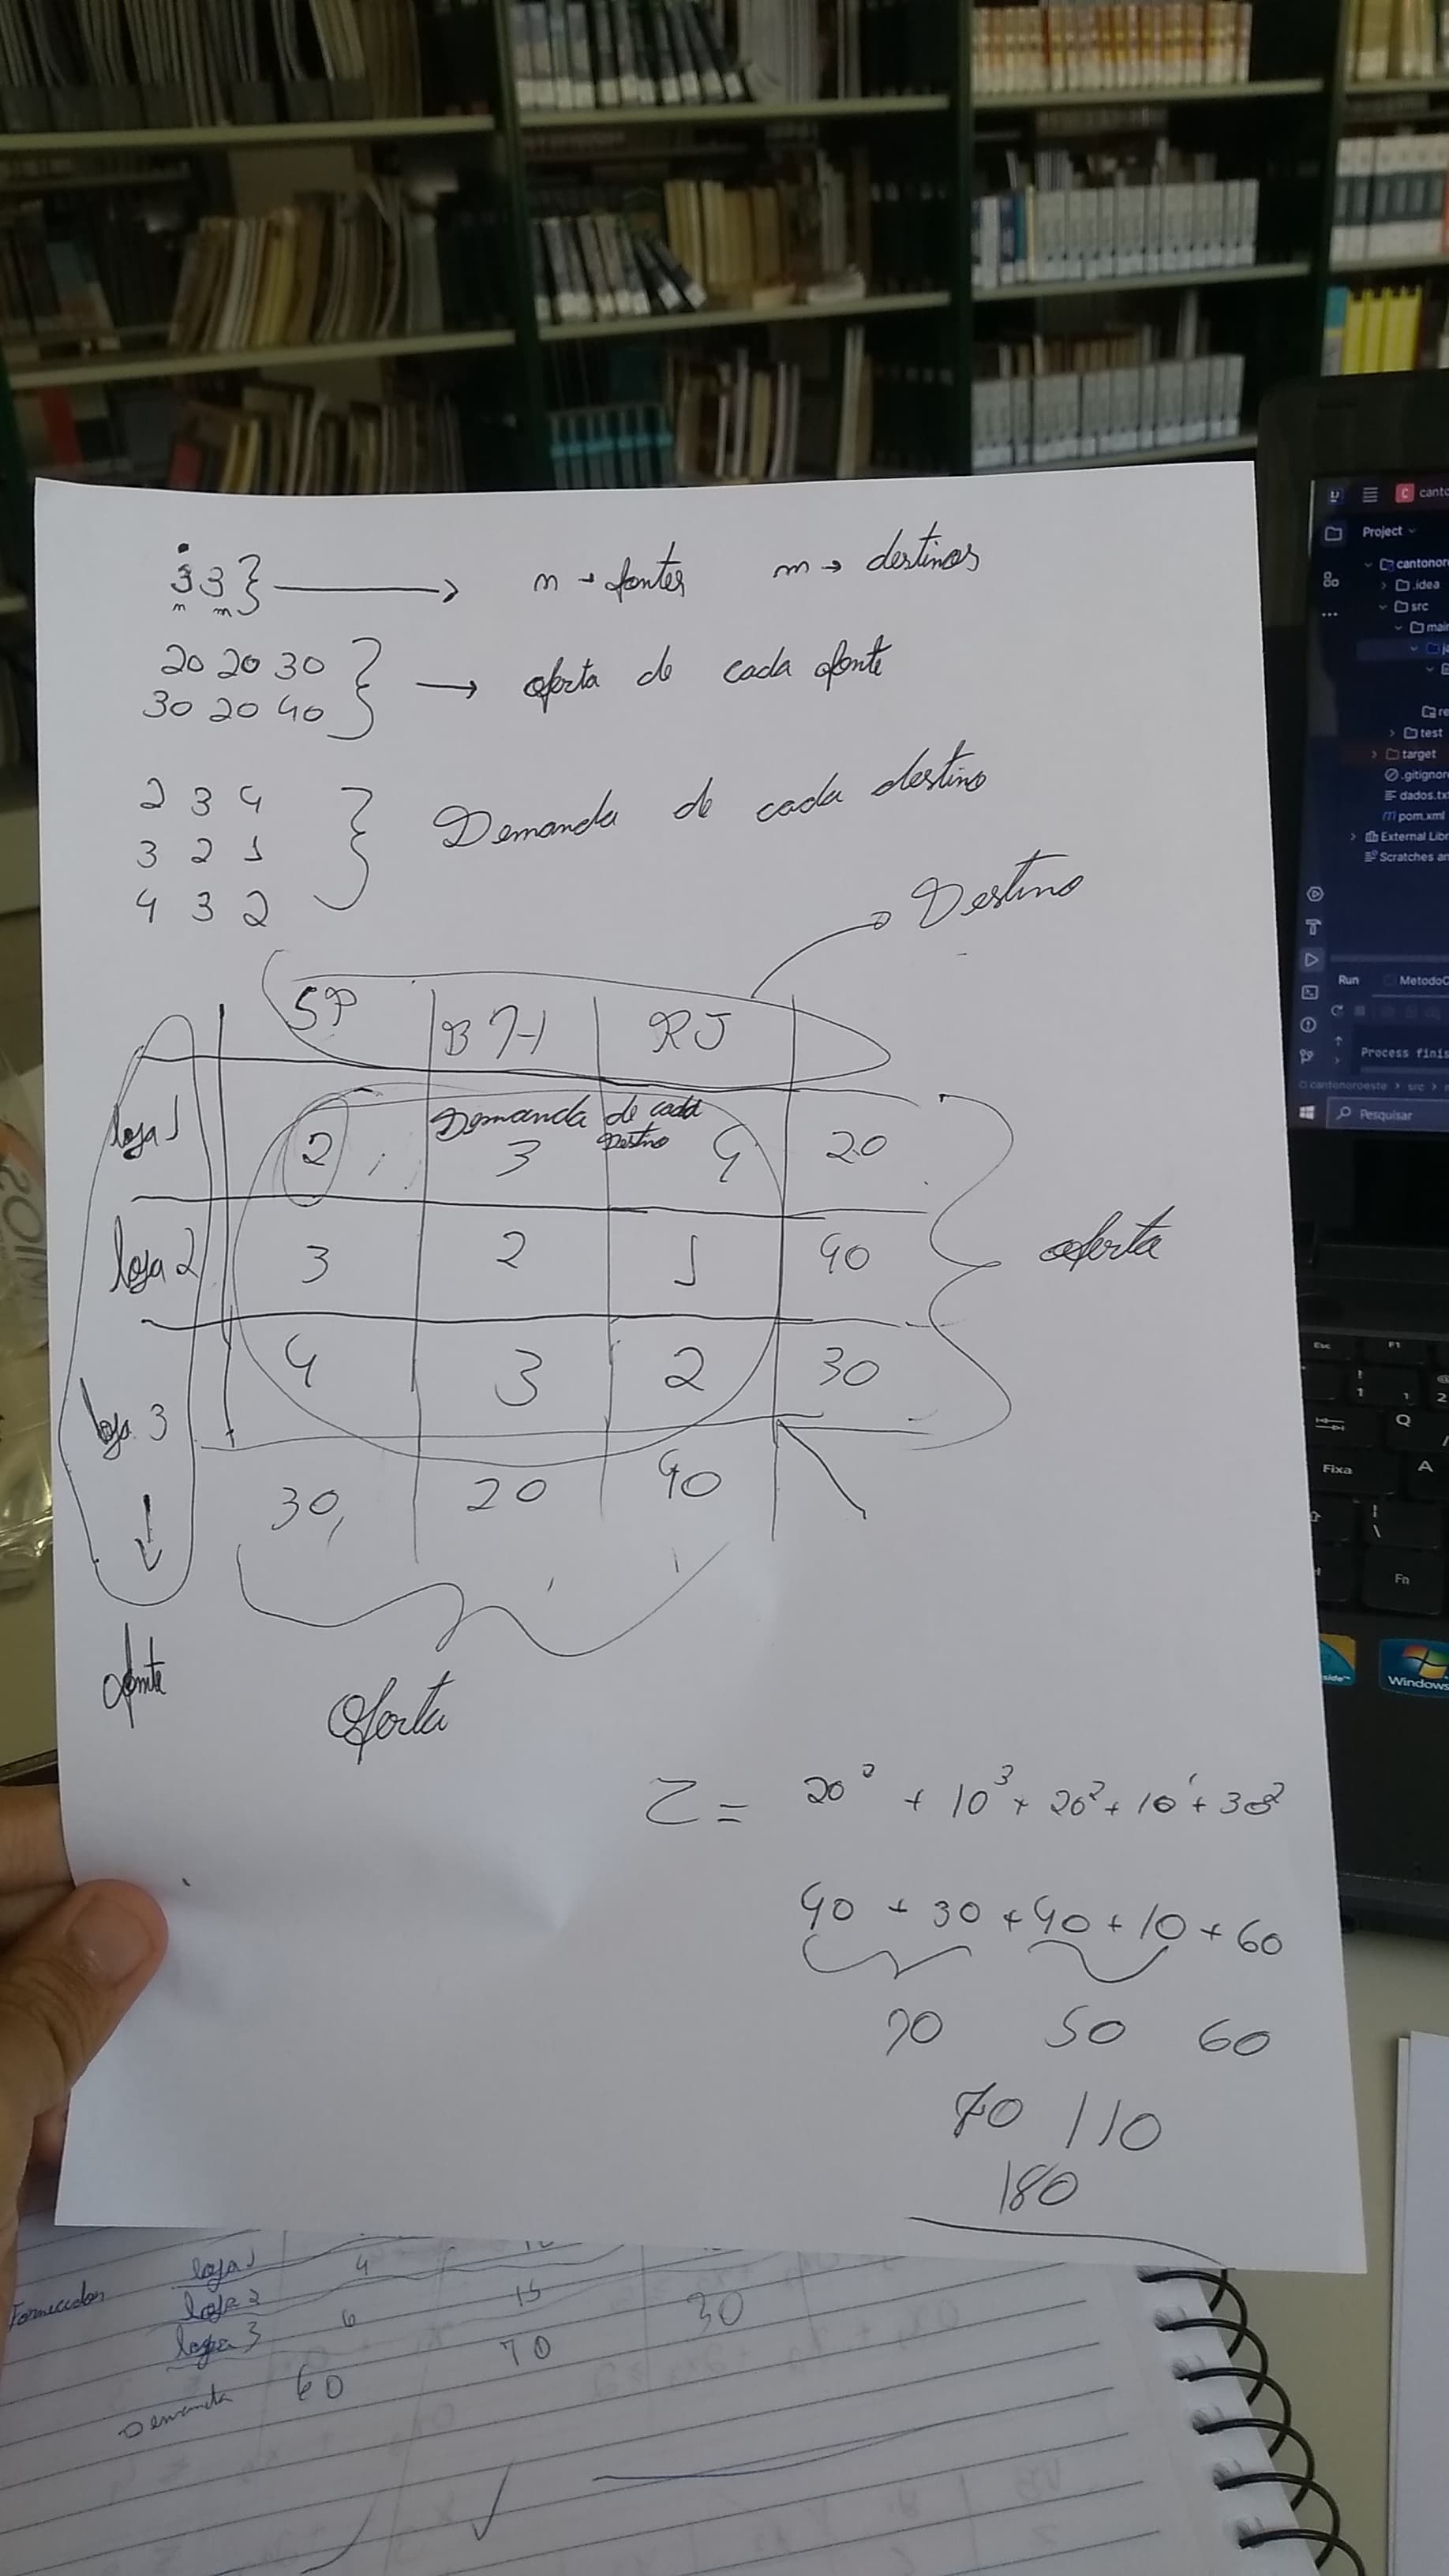 3 3 } → n → fontes m → destinos
n m
20 20 30
30 20 40
} → oferta de cada fonte
2 3 4
3 2 1
4 3 2
} Demanda de cada destino
Destino
SP BH RJ
Demanda de cada
Destino
loja 1 2 3 4 20
loja 2 3 2 1 40
loja 3 4 3 2 30
30, 20 40
oferta
fonte
Oferta
Z = 20² + 10³ + 20² + 10¹ + 30²
40 + 30 + 40 + 10 + 60
70 50 60
70 110
180
loja 1 4
Fornecedor loja 2 15
loja 3 6 30
Demanda 60 70
Project
cantonoro
.idea
src
main
test
target
.gitignore
dados.tx
pom.xml
External Libr
Scratches an
Run MetodoC
Process finis
cantonoroeste > src >
Pesquisar
Esc F1
Q
Fixa A
Fn
Windows